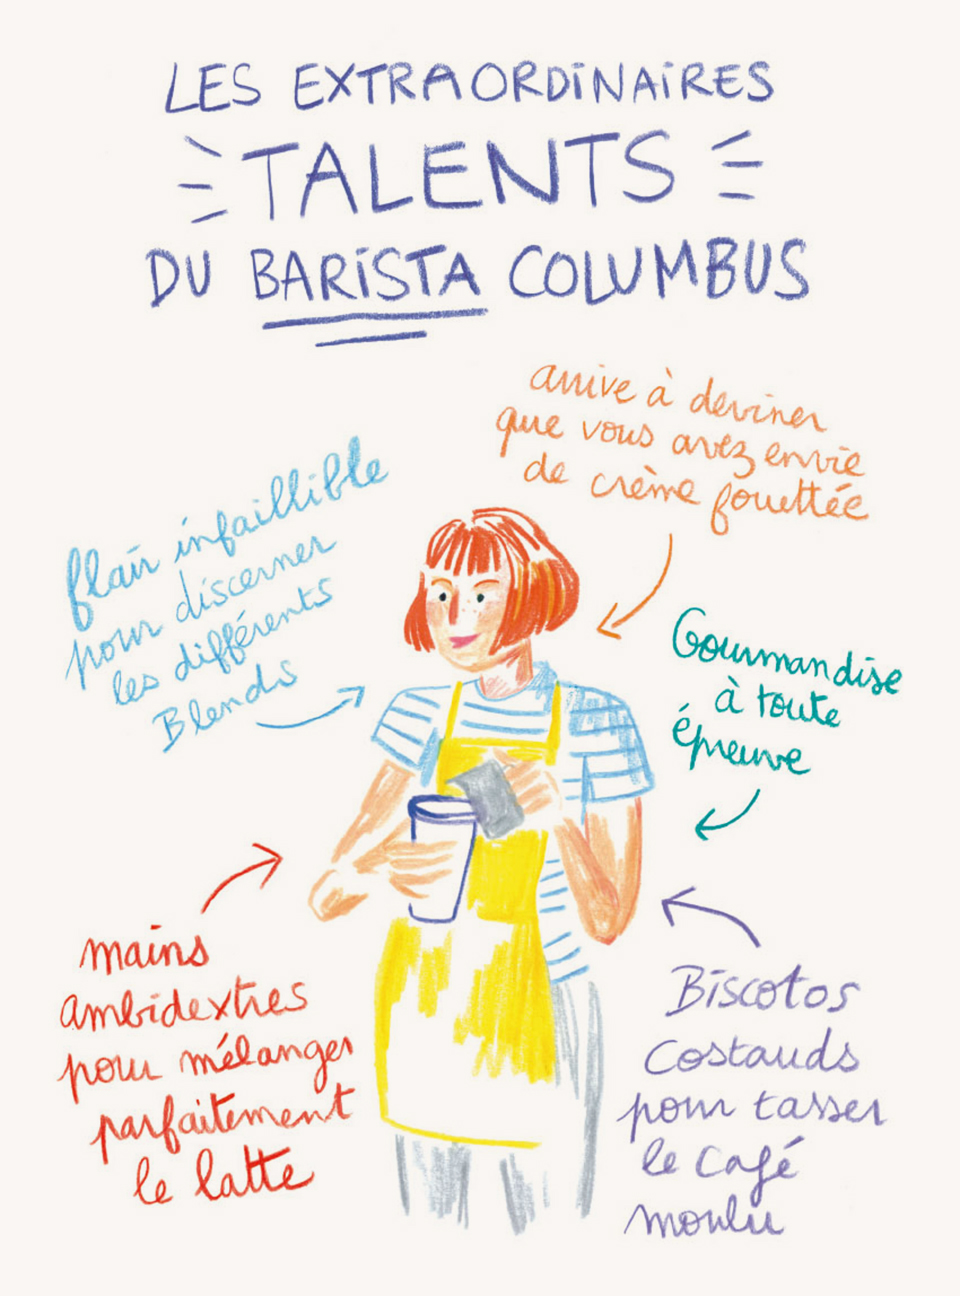 LES EXTRAORDINAIRES
TALENTS
DU BARISTA COLUMBUS
arrive à deviner
que vous avez envie
de crème fouettée
flair infaillible
pour discerner
les différents
Blends
Gourmandise
à toute
épreuve
mains
ambidextres
pour mélanger
parfaitement
le latte
Biscotos
Costauds
pour tasser
le café
moulu